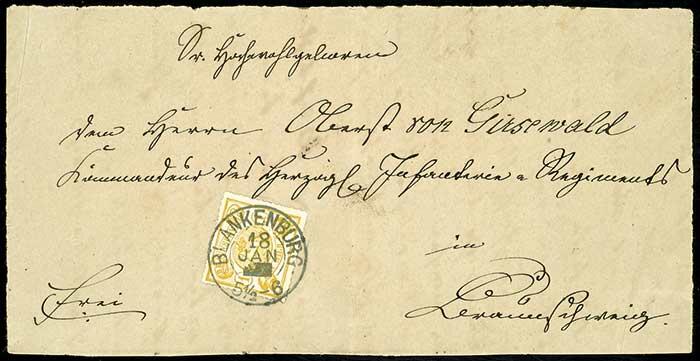 Sr. Hochwohlgeboren
dem Herrn Oberst von Girsewald
Kommandeur des Herzogl. Infanterie-Regiments
in
Braunschweig.
frei
BLANKENBURG
18
JAN
5½-6